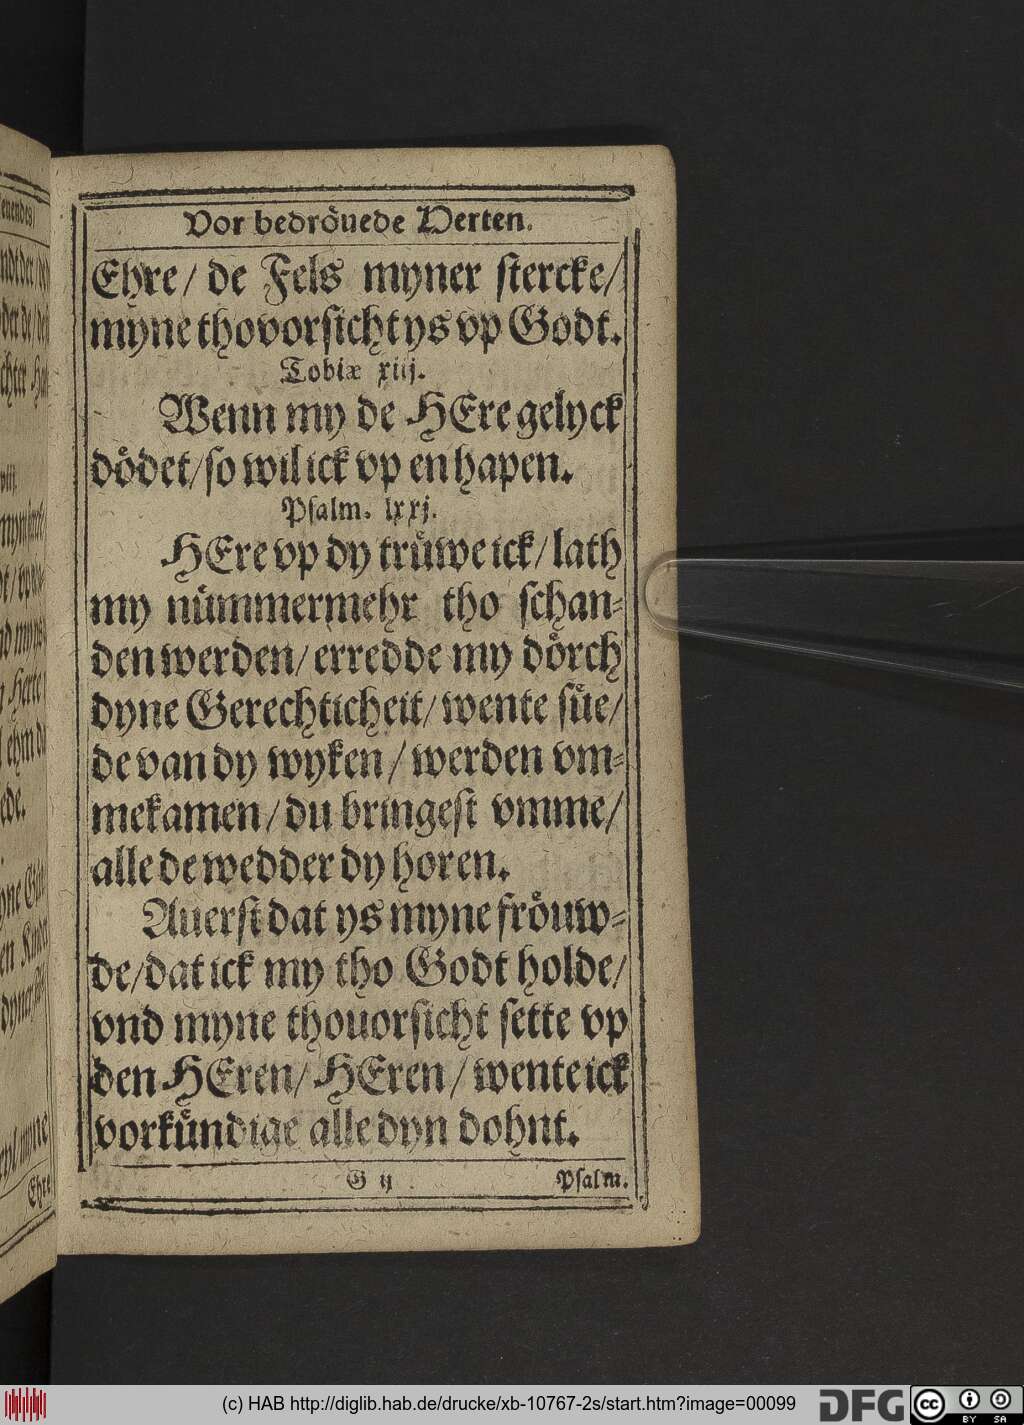 Vor bedröuede Herten.
Ehre/ de Fels myner stercke/
myne thovorsicht ys vp Godt.
Tobiæ xiij.
Wenn my de HEre gelyck
dödet/ so wil ick vp en hapen.
Psalm. lxxj.
HEre vp dy trüwe ick/ lath
my nümmermehr tho schan-
den werden/ erredde my dörch
dyne Gerechticheit/ wente süe/
de van dy wyken/ werden vm-
mekamen/ du bringest vmme/
alle de wedder dy horen.
Auerst dat ys myne fröuw-
de/ dat ick my tho Godt holde/
vnd myne thouorsicht sette vp
den HEren/ HEren/ wente ick
vorkündige alle dyn dohnt.
G ij
Psalm.
Ehre
(c) HAB http://diglib.hab.de/drucke/xb-10767-2s/start.htm?image=00099
DFG
cc
BY SA